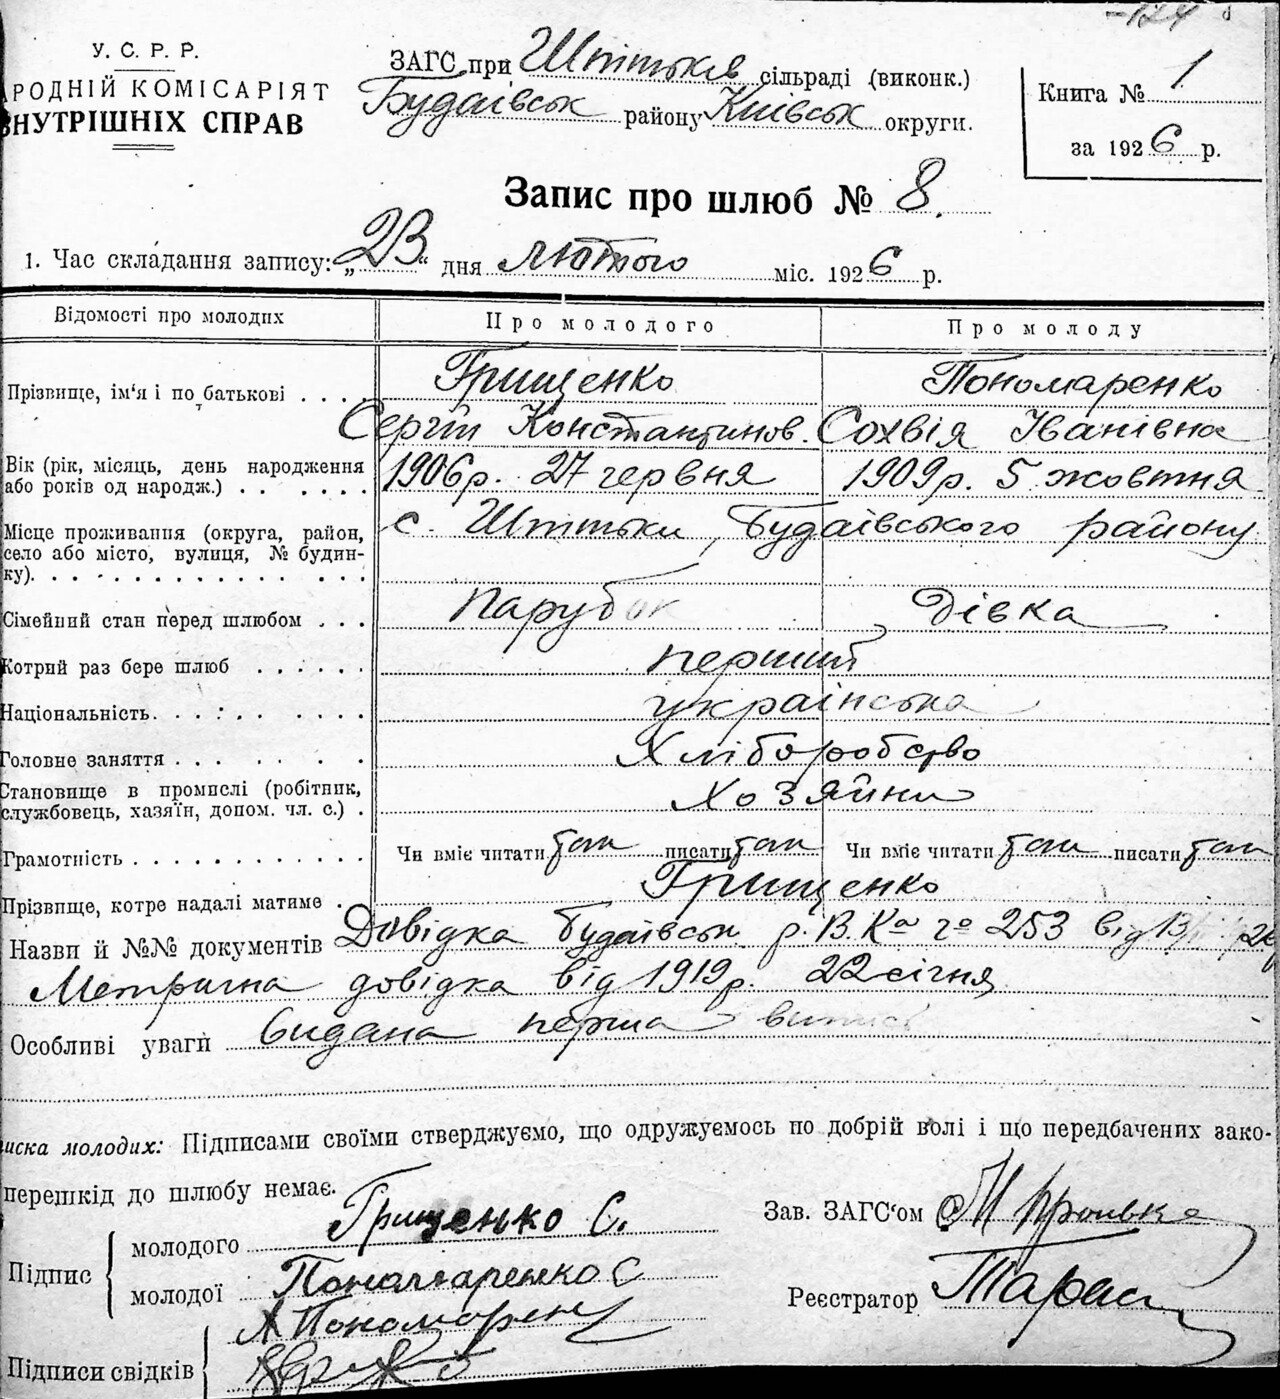 -124
У. С. Р. Р.
РОДНІЙ КОМІСАРІЯТ
ВНУТРІШНІХ СПРАВ
ЗАГС при Шпітьків сільраді (виконк.)
Будаївськ району Київськ округи.
Книга № 1
за 1926 р.
Запис про шлюб № 8.
1. Час складання запису: „23“ дня лютого міс. 1926 р.
Відомості про молодих Про молодого Про молоду
Прізвище, ім'я і по батькові . . . . Грищенко Пономаренко
Сергій Константинов. Сохвія Іванівна
Вік (рік, місяць, день народження
або років од народж.) . . . . . . 1906р. 27 червня 1909р. 5 жовтня
Місце проживання (округа, район,
село або місто, вулиця, № будин-
ку). . . . . . . . . . . . . . с. Шпітьки, Будаївського району
Сімейний стан перед шлюбом . . . Парубок Дівка
Котрий раз бере шлюб . . . . . . перший
Національність. . . . . . . . . українська
Головне заняття . . . . . . . Хліборобство
Становище в промислі (робітник,
службовець, хазяїн, допом. чл. с.) . Хозяйни
Грамотність . . . . . . . . . . . . Чи вміє читати так писати так Чи вміє читати так писати так
Прізвище, котре надалі матиме . Грищенко
Назви й №№ документів Довідка Будаївськ р.В.Ка 253 від 13
Метрична довідка від 1919р. 22 січня
Особливі уваги Видана перша випись
иска молодих: Підписами своїми стверджуємо, що одружуємось по добрій волі і що передбачених зако-
перешкід до шлюбу немає.
Підпис { молодого Грищенко С.
молодої Пономаренко С
Зав. ЗАГС'ом
Реєстратор Тарас
Підписи свідків { А Пономарен